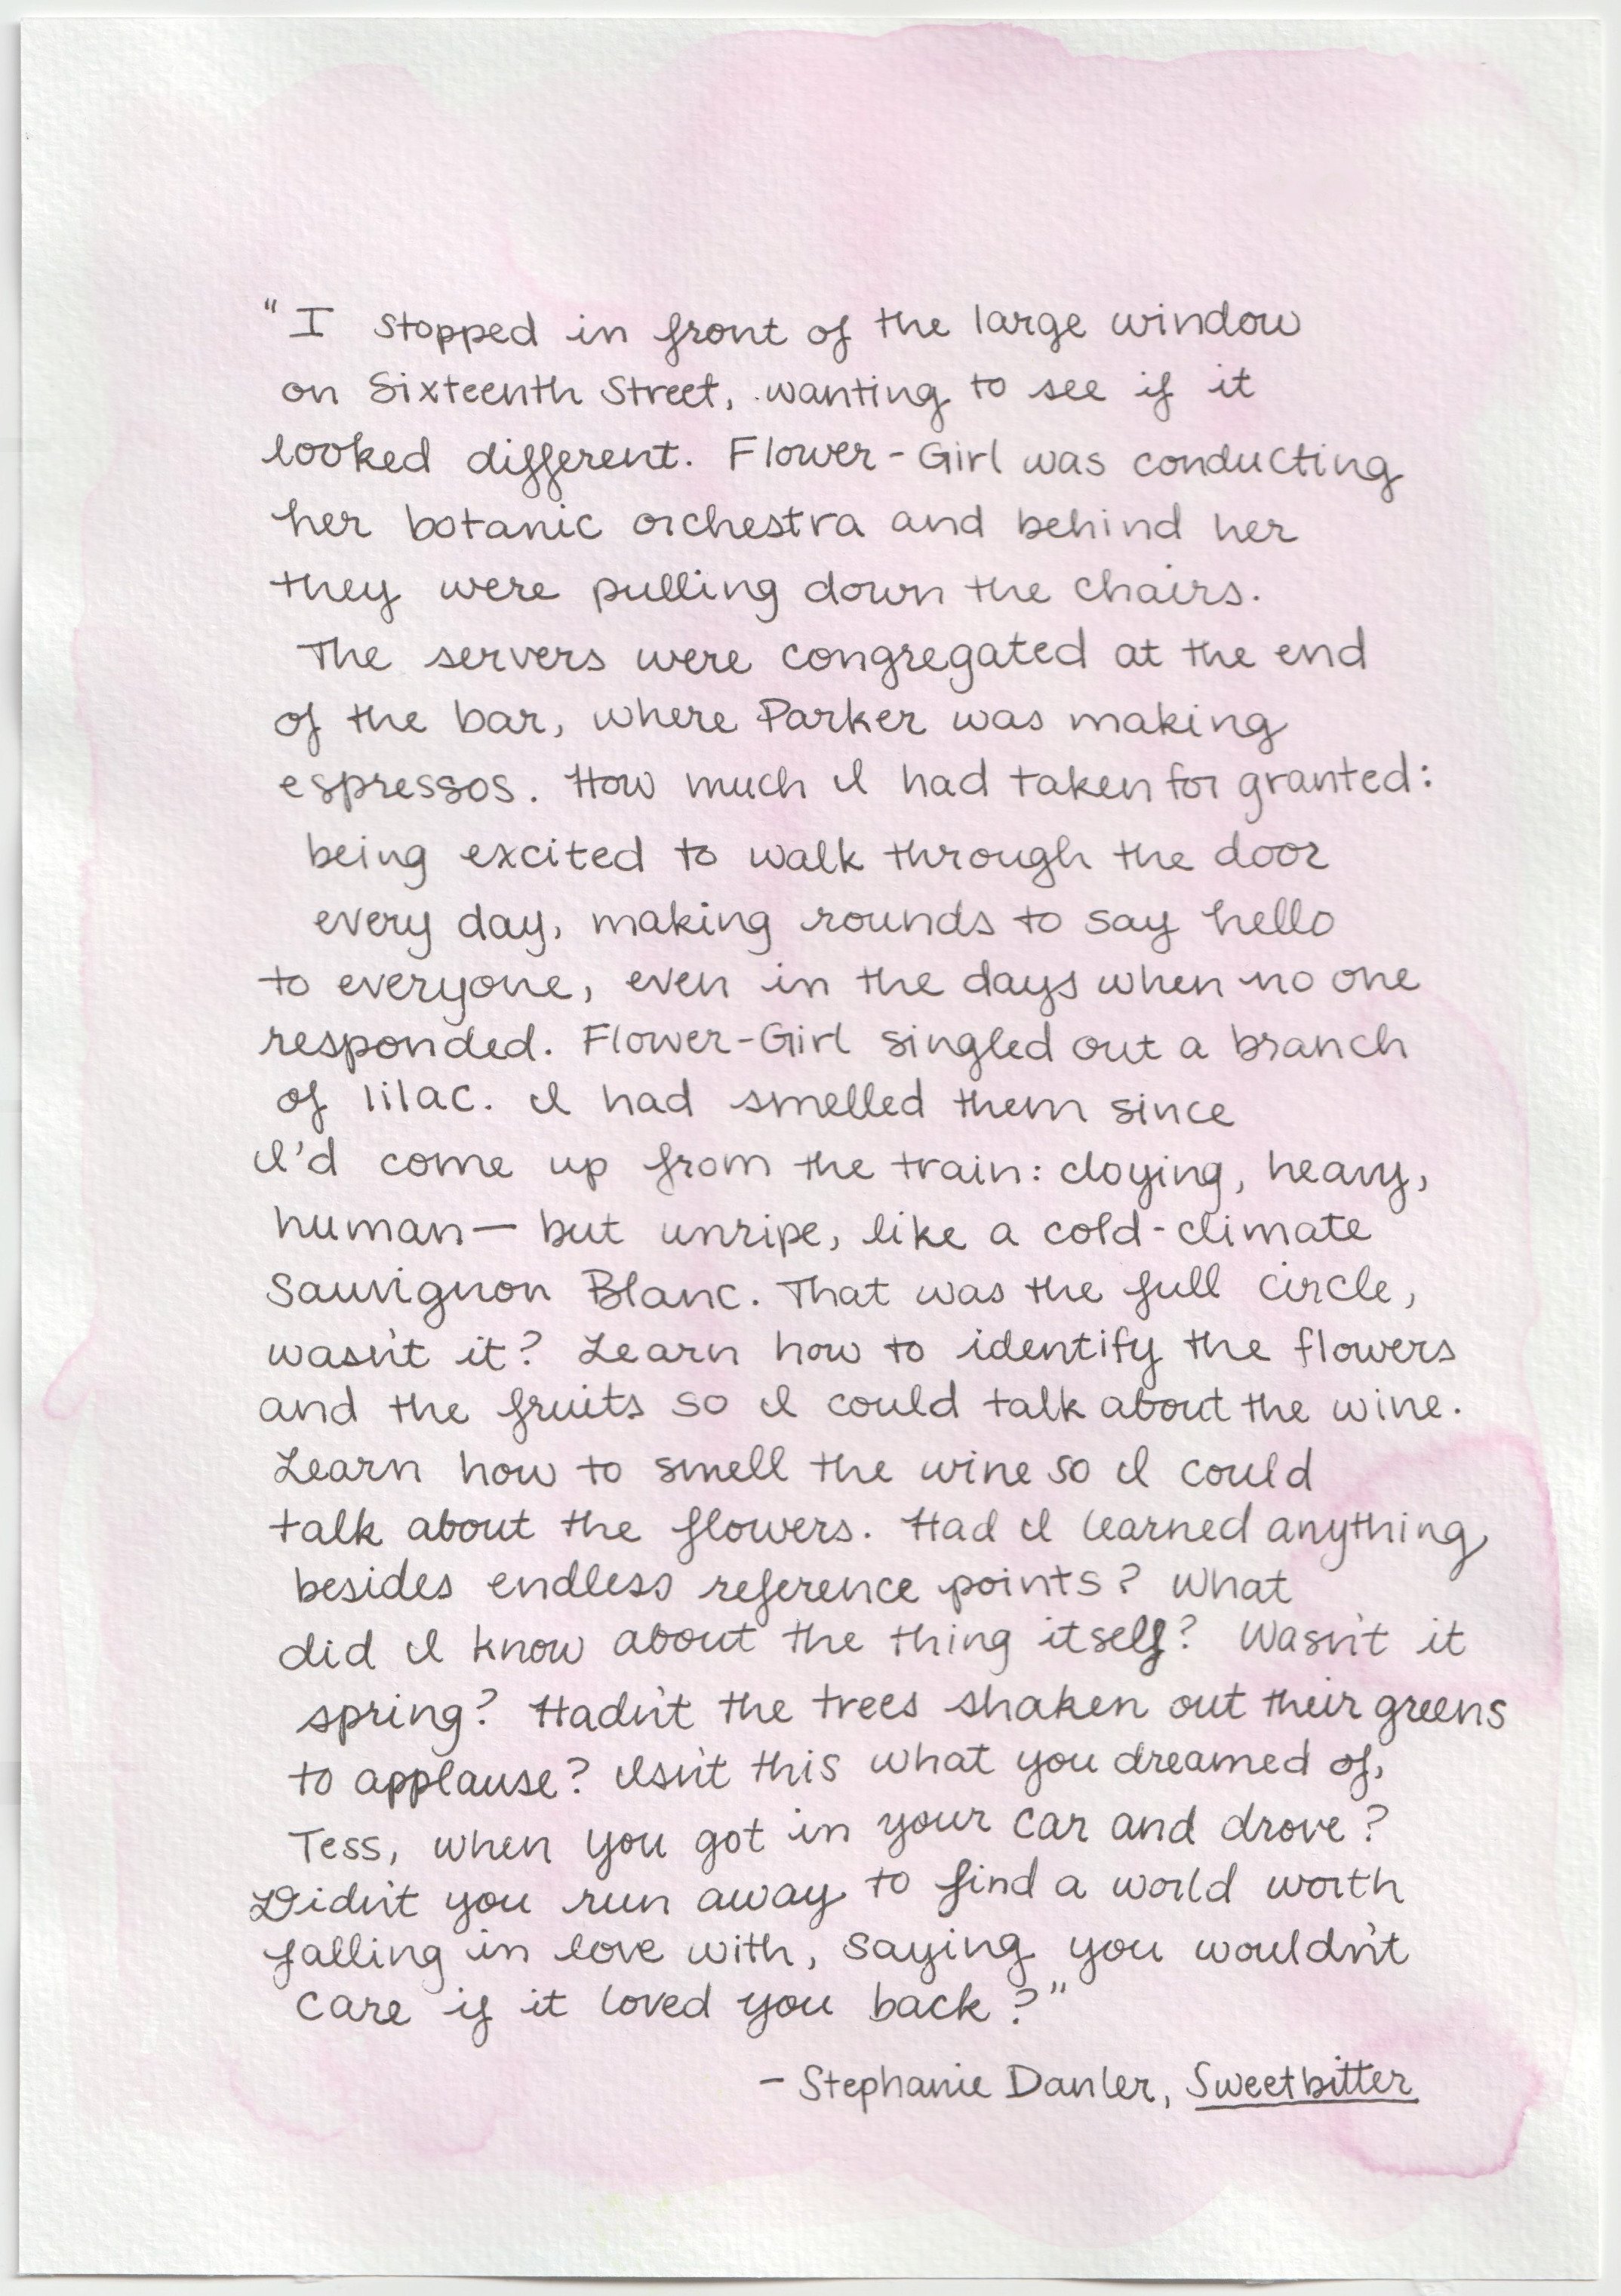 "I stopped in front of the large window
on Sixteenth Street, wanting to see if it
looked different. Flower-Girl was conducting
her botanic orchestra and behind her
they were pulling down the chairs.
The servers were congregated at the end
of the bar, where Parker was making
espressos. How much I had taken for granted:
being excited to walk through the door
every day, making rounds to say hello
to everyone, even in the days when no one
responded. Flower-Girl singled out a branch
of lilac. I had smelled them since
I'd come up from the train: cloying, heavy,
human— but unripe, like a cold-climate
Sauvignon Blanc. That was the full circle,
wasn't it? Learn how to identify the flowers
and the fruits so I could talk about the wine.
Learn how to smell the wine so I could
talk about the flowers. Had I learned anything
besides endless reference points? What
did I know about the thing itself? Wasn't it
spring? Hadn't the trees shaken out their greens
to applause? Isn't this what you dreamed of,
Tess, when you got in your car and drove?
Didn't you run away to find a world worth
falling in love with, saying you wouldn't
care if it loved you back?"
- Stephanie Danler, Sweetbitter